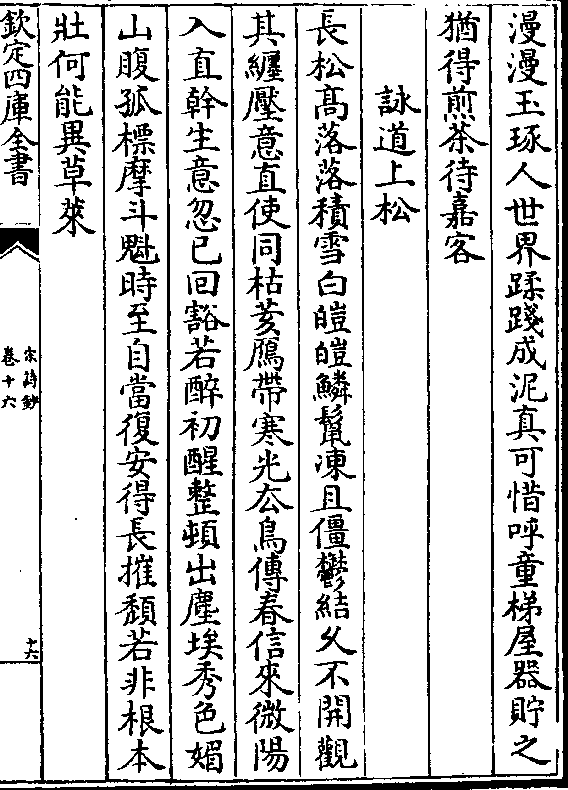 漫漫玉琢人世界蹂踐成泥真可惜呼童梯屋器貯之
猶得煎茶待嘉客
詠道上松
長松髙落落積雪白皚皚鱗鬛凍且僵鬱結乆不開觀
其纒壓意直使同枯荄鴈帶寒光去鳥傳春信來微陽
入直幹生意忽已回豁若醉初醒整頓出塵埃秀色媚
山腹孤標摩斗魁時至自當復安得長摧頽若非根本
壯何能異草萊
欽定四庫全書
宋詩鈔
卷十六
十六